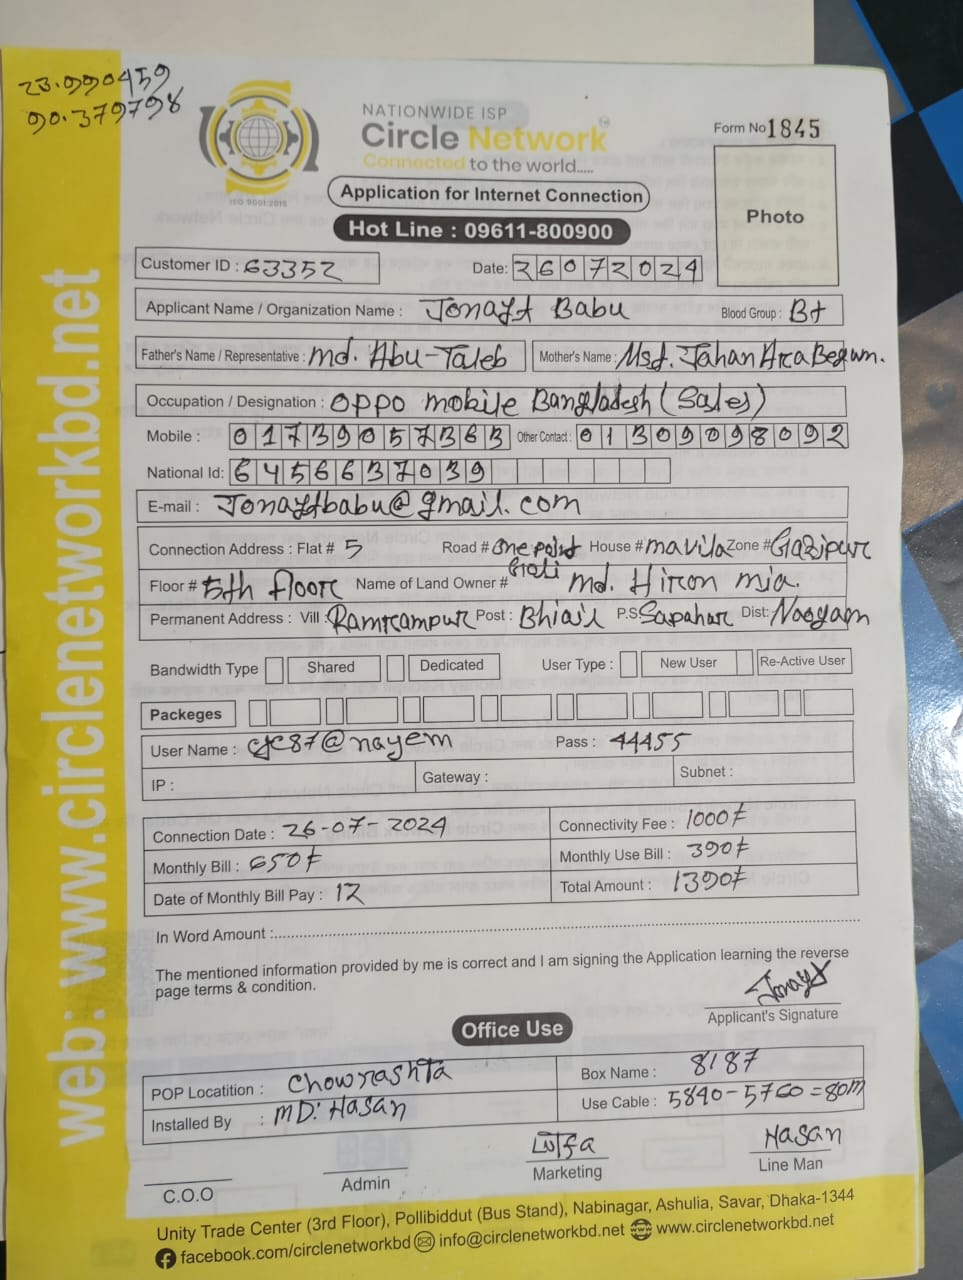 23.990459
90.379798
NATIONWIDE ISP
Circle Network
Connected to the world.....
ISO 9001:2015
Form No 1845
Photo
Application for Internet Connection
Hot Line : 09611-800900
Customer ID : 63352 Date: 26072024
Applicant Name / Organization Name : Jonayt Babu Blood Group : B+
Father's Name / Representative : md. Abu-Taleb Mother's Name : Mst. Jahan Ara Begum.
Occupation / Designation : OPPO mobile Bangladesh (Sales)
Mobile : 01739057363 Other Contact : 01309098092
National Id: 6456637039
E-mail : Jonaytbabu@gmail.com
Connection Address : Flat # 5 Road # One point Goli House # mavila Zone # Gazipur
Floor # 5th floor Name of Land Owner # md. Hiron mia.
Permanent Address : Vill : Ramrampur Post : Bhiail P.S: Sapahar Dist: Naogam
Bandwidth Type Shared Dedicated User Type : New User Re-Active User
Packeges
User Name : cjc87@nayem Pass : 44455
IP : Gateway : Subnet :
Connection Date : 26-07-2024 Connectivity Fee : 1000/
Monthly Bill : 650/ Monthly Use Bill : 390/
Date of Monthly Bill Pay : 12 Total Amount : 1390/
In Word Amount :
The mentioned information provided by me is correct and I am signing the Application learning the reverse
page terms & condition.
Jonayt
Applicant's Signature
Office Use
POP Locatition : Chowrashta Box Name : 8187
Installed By : MD: Hasan Use Cable : 5840-5760=80m
C.O.O Admin Marketing Hasan Line Man
Unity Trade Center (3rd Floor), Pollibiddut (Bus Stand), Nabinagar, Ashulia, Savar, Dhaka-1344
facebook.com/circlenetworkbd info@circlenetworkbd.net www.circlenetworkbd.net
web: www.circlenetworkbd.net